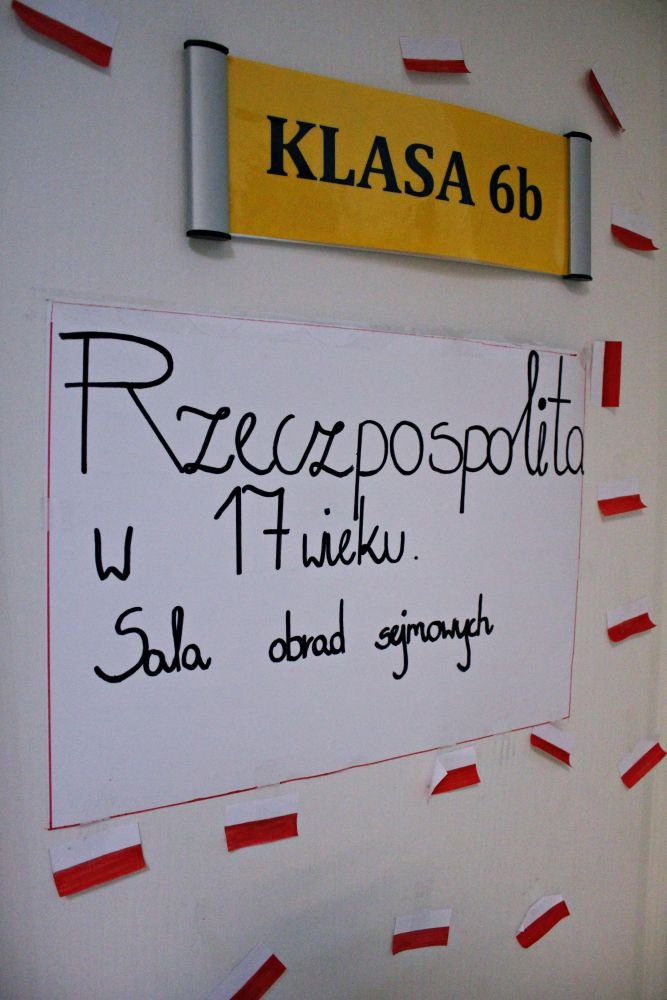 KLASA 6b
Rzeczpospolita
w 17 wieku.
Sala obrad sejmowych